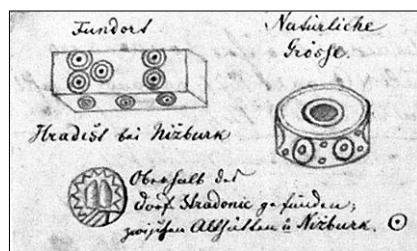 Fundort
Natürliche
Grösse.
Hradišt bei Nižburk
Oberhalb des
Dorf Stradonic gefunden,
zwischen Althütten u Nižburk.